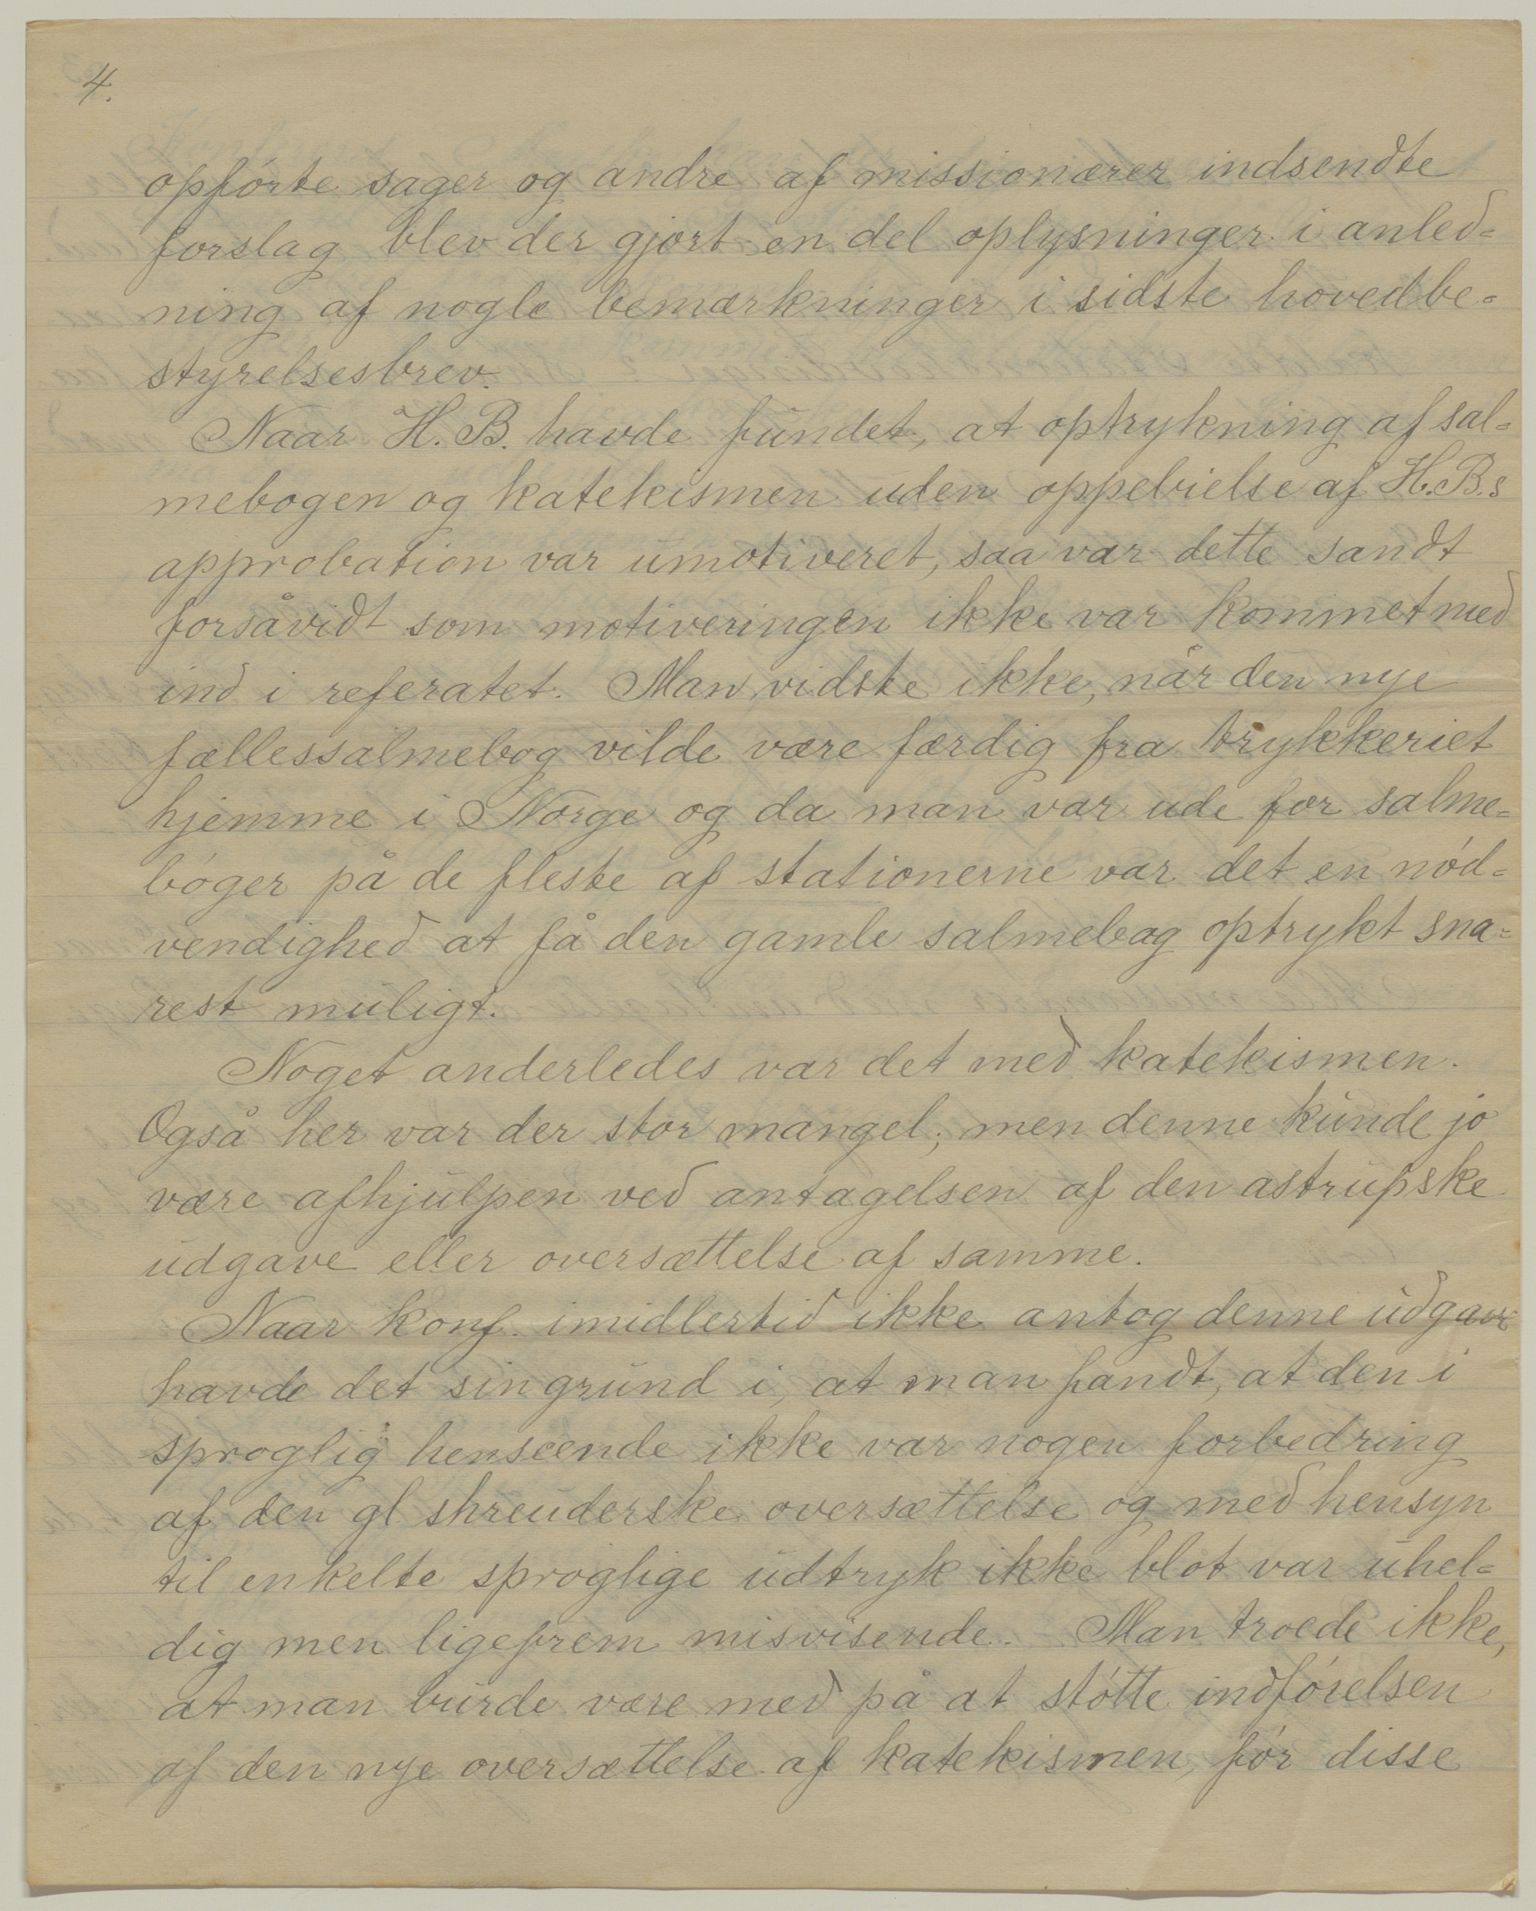 4.
opførte sager og andre af missionærer indsendte
forslag blev der gjort en del oplysninger i anled=
ning af nogle bemærkninger i sidste hovedbe=
styrelsesbrev.
Naar H. B. havde fundet, at optrykning af sal=
mebogen og katekismen uden oppebielse af H.B.s
approbation var umotiveret, saa var dette sandt
forsåvidt som motiveringen ikke var kommet med
ind i referatet. Man vidste ikke, når den nye
fællessalmebog vilde være færdig fra trykkeriet
hjemme i Norge og da man var ude for salme=
bøger på de fleste af stationerne var det en nød=
vendighed at få den gamle salmebog optrykt sna=
rest muligt.
Noget anderledes var det med katekismen.
Også her var der stor mangel; men denne kunde jo
være afhjulpen ved antagelsen af den astrupske
udgave eller oversættelse af samme.
Naar konf. imidlertid ikke antog denne udgave
havde det sin grund i, at man fandt, at den i
sproglig henseende ikke var nogen forbedring
af den gl skreuderske oversættelse og med hensyn
til enkelte sproglige udtryk ikke blot var uhel=
dig men ligefrem misvisende. Man troede ikke,
at man burde være med på at støtte indførelsen
af den nye oversættelse af katekismen, før disse